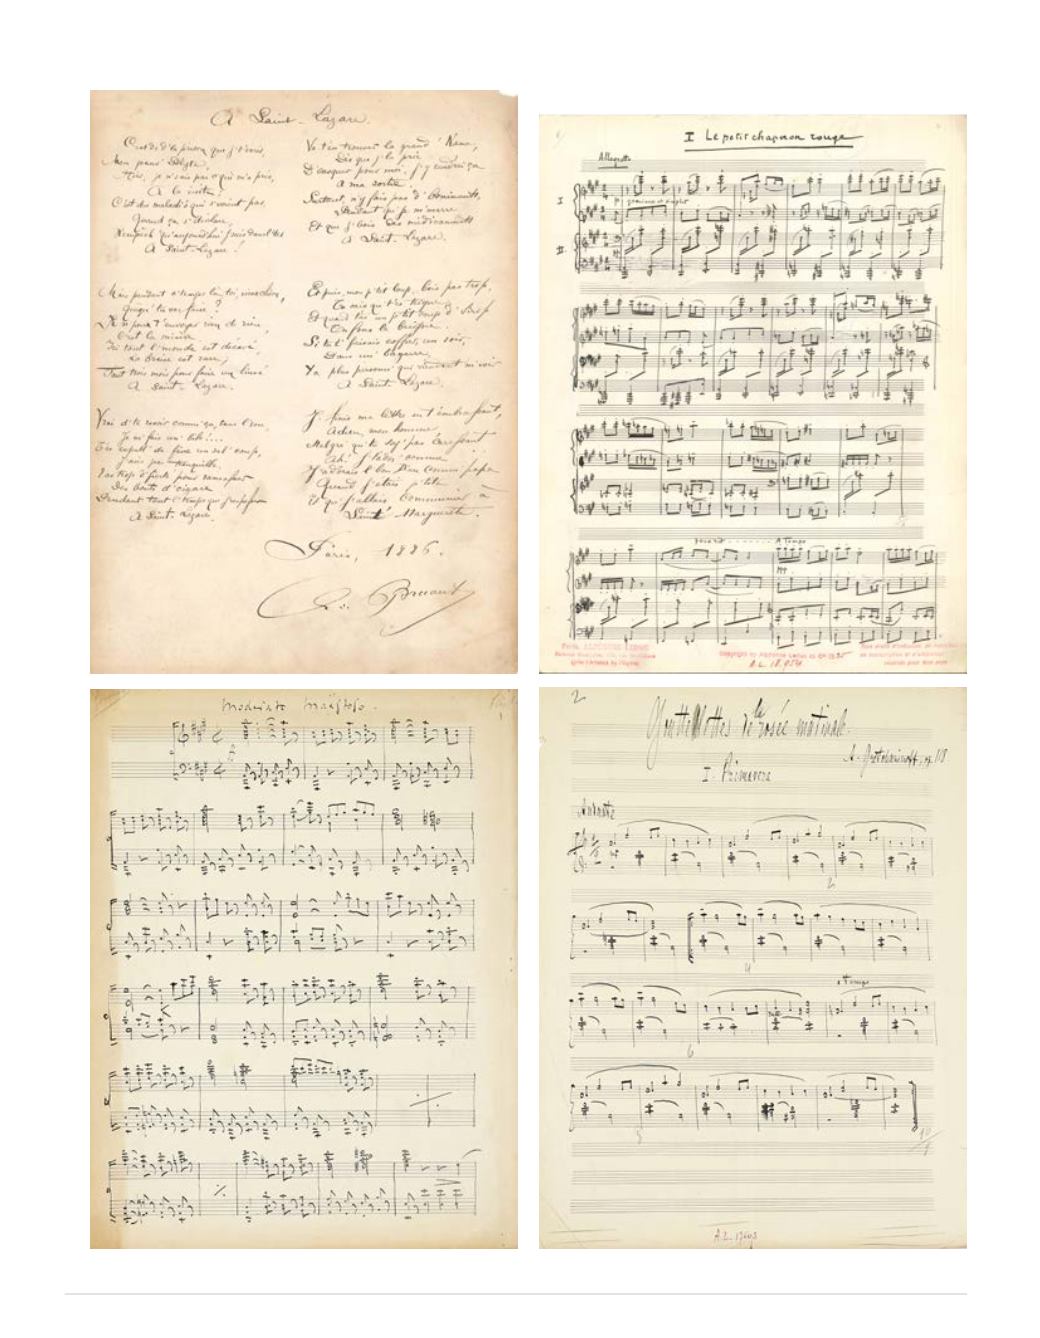 A Saint-Lazare.
C'est d'd'la prison que j't'écris,
Mon pauv' Polyte,
Hier, je n'sais pas c'qui m'a pris,
A la visite;
C'est des maladi's qui s'voient pas,
Quand ça s'déclare,
N'empêch' qu'aujourd'hui j'suis dans l'tas
A Saint-Lazare!
Mais pendant c'temps-là, toi,
Quéqu' tu vas faire?
Je n'peux t'envoyer rien de rien,
C'est la misère
Ici tout l'monde est décavé,
La braise est rare;
Faut trois mois pour faire un linvé
A Saint-Lazare.
Vrai d'te savoir comm' ça, sans l'sou,
Je m'fais un' bile!...
T'es capabl' de faire un sal' coup,
J'suis pas tranquille.
T'as trop d'fierté pour ramasser
Des bouts d'cigare
Pendant tout l'temps que j'vas passer
A Saint-Lazare.
Va-t'en trouver la grand' Nana,
Dis que j'la prie
D'casquer pour moi, j'y rendrai ça
A ma sortie
Surtout, n'y fais pas d'boniments,
Pendant qu'je m'marre
Et que j'bois des médicaments
A Saint-Lazare.
Et puis, mon p'tit loup, bois pas trop,
Tu sais qu't'es teigne
Et quand t'as un p'tit coup d'sirop
Tu fous la beigne.
Si tu t'faisais coffrer, un soir,
Dans un' bagarre,
Y a plus personn' qui viendrait m'voir
A Saint-Lazare.
J'finis ma lettre en t'embrassant,
Adieu, mon homme,
Malgré qu'tu soy' pas caressant
Ah! J't'ador' comme
J'adorais l'bon Dieu comm' papa
Quand j'étais p'tite
Et qu'j'allais communier à
Saint' Marguerite.
Paris, 1886.
Bruant
I Le petit chaperon rouge
Allegretto
I
II
A Tempo
PPP
Paris, ALPHONSE LEDUC
Copyright by Alphonse Leduc et Cie
A.L. 18.954
moderato maestoso.
2
Gouttelottes de la rosée matinale.
A. Gretchaninoff, op. 118
I. Primavera
Andante
2
4
a Tempo
6
5
A.L.